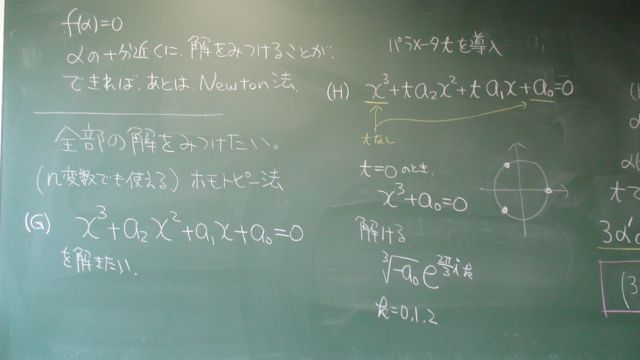 f(α)=0
αの十分近くに、解をみつけることが
できれば、あとは、Newton法、
全部の解をみつけたい。
(n変数でも使える) ホモトピー法
(G) x³+a₂x²+a₁x+a₀=0
を解きたい.
パラメータtを導入
(H) x³+ta₂x²+ta₁x+a₀=0
tなし
t=0のとき.
x³+a₀=0
解ける.
∛-a₀ e^{2π/3 i k}
k=0,1,2